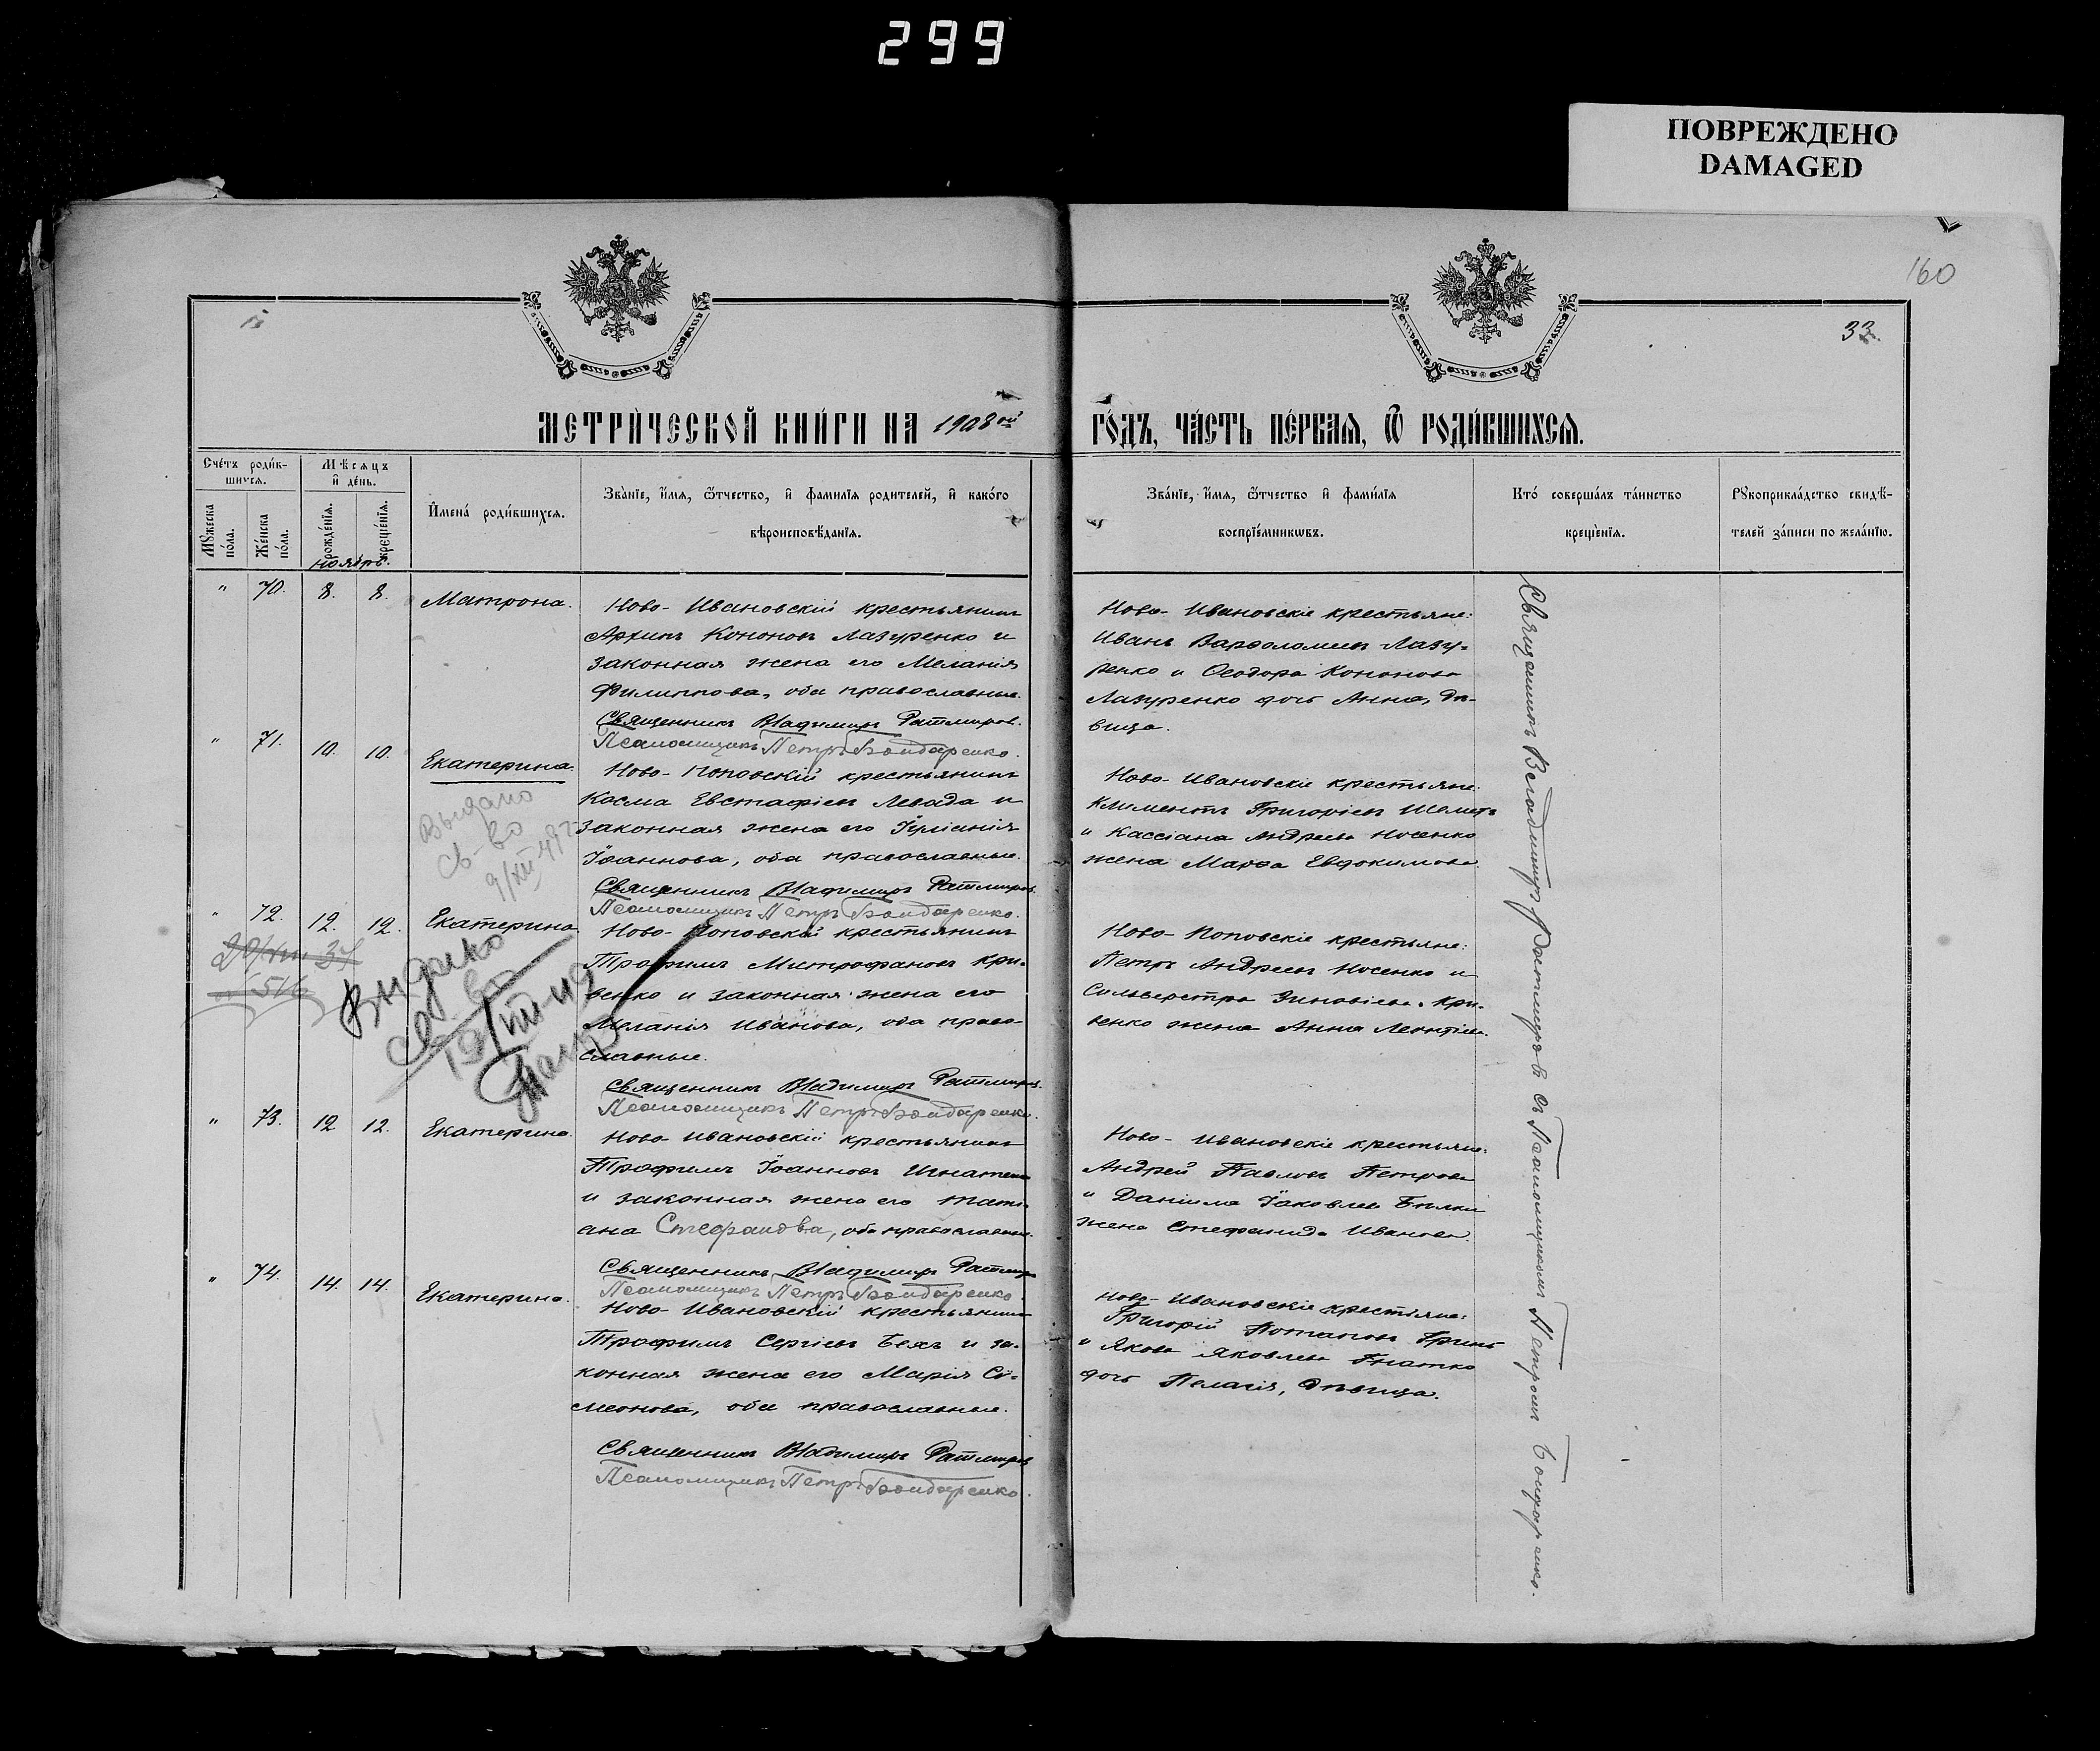 299
ПОВРЕЖДЕНО
DAMAGED
160
33.
МЕТРИ́ЧЕСКОЙ КНИ́ГИ НА 1908ой
ГО́ДЪ, ЧА́СТЬ ПЕ́РВАЯ, Ѿ РОДИ́ВШИХСЯ.
Сче́тъ роди́в-
шихся.
Мѣсяцъ
и де́нь.
Мꙋжеска
по́ла.
Же́нска
по́ла.
рожде́нїя.
креще́нїя.
Имена́ роди́вшихся.
Зва́нїе, и́мя, ѻ҆́тчество, и фами́лїя родителей, и како́го
вѣроисповѣ́данїя.
Зва́нїе, и́мя, ѻ҆́тчество и фами́лїя
воспрїе́мникѡвъ.
Кто́ соверша́лъ та́инство
креще́нїя.
Рꙋкоприкла́дство свидѣ́-
телей за́писи по жела́нїю.
ноябрь.
" 70. 8. 8. Матрона.
Ново-Ивановскій крестьянинъ
Архипъ Кононовъ Лазуренко и
законная жена его Меланія
Филиппова, оба православные.
Священникъ Владимиръ Ратмиров.
Псаломщикъ Петръ Бондаренко.
Ново-Ивановскіе крестьяне:
Иванъ Варѳоломеевъ Лазу-
ренко и Ѳеодора Кононова
Лазуренко дочь Анна, дѣ-
вица.
" 71. 10. 10. Екатерина.
Ново-Поповскій крестьянинъ
Косма Евстафіевъ Левада и
законная жена его Іуліанія
Іоаннова, оба православные.
Священникъ Владимиръ Ратмиров.
Псаломщикъ Петръ Бондаренко.
Ново-Ивановскіе крестьяне:
Климентъ Григоріевъ Шеметъ
и Кассіана Андреева Носенко
жена Марѳа Евдокимова.
Выдано
св-во
9/XII
" 72. 12. 12. Екатерина.
Ново-Поповскій крестьянинъ
Трофимъ Митрофановъ Кри-
венко и законная жена его
Меланія Иванова, оба право-
славные.
Священникъ Владимиръ Ратмиров.
Псаломщикъ Петръ Бондаренко.
Ново-Поповскіе крестьяне:
Петръ Андреевъ Носенко и
Сильверстра Зиновіева Кри-
венко жена Анна Леонтіева.
516
Видано
св-во
" 73. 12. 12. Екатерина.
Ново-Ивановскій крестьянинъ
Трофимъ Іоанновъ Игнатенко
и законная жена его Тати-
ана Стефанова, оба православные.
Священникъ Владимиръ Ратмиров
Псаломщикъ Петръ Бондаренко.
Ново-Ивановскіе крестьяне:
Андрей Павловъ Петрова
и Даніила Іаковлева Билки
жена Стефанида Иванова.
" 74. 14. 14. Екатерина.
Ново-Ивановскій крестьянинъ
Трофимъ Сергіевъ Бехъ и за-
конная жена его Марія Си-
меонова, оба православные.
Священникъ Владимиръ Ратмиров
Псаломщикъ Петръ Бондаренко.
Ново-Ивановскіе крестьяне:
Григорій Потаповъ Гринь
и Якова Яковлева Гнатко
дочь Пелагія, дѣвица.
Священникъ Владимиръ Ратмировъ съ Псаломщикомъ Петромъ Бондаренко.